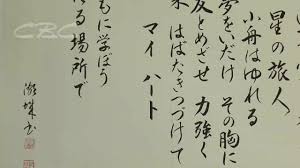 星の旅人
小舟はゆれる
夢をいだけ その胸に
友とめざせ 力強く
来 はばたきつづけて
マイ ハート
もに学ぼう
る場所で
CBC